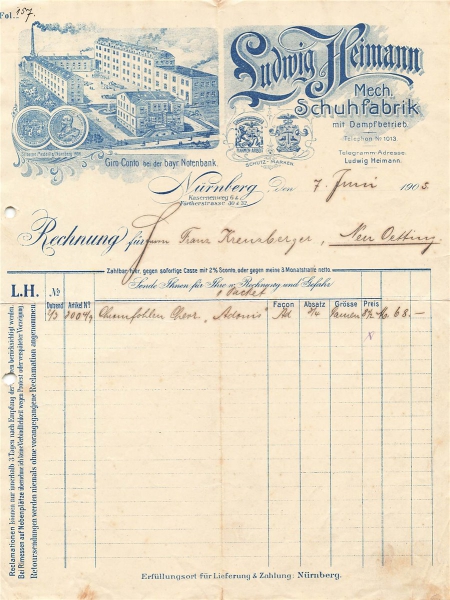 Fol. 957.
Ludwig Heimann
Mech.
Schuhfabrik
mit Dampfbetrieb.
Telephon No 1013.
Telegramm-Adresse:
Ludwig Heimann.
SCHUTZ-MARKEN.
Giro-Conto bei der bayr. Notenbank.
Nürnberg, den 7. Juni 1905.
Kasernenweg 6 &
Fürtherstrasse
Rechnung für Herrn Franz Kreuzberger, Neu Oetting
Zahlbar hier, gegen sofortige Casse mit 2% Sconto, oder gegen meine 3 Monatstratte netto.
Sende Ihnen für Ihre w. Rechnung und Gefahr
1 Packet
L.H. No
Dutzend Artikel No Façon Absatz Grösse Preis
"Adonis" Ad 3/4 Damen 68.-
Reclamationen können nur innerhalb 3 Tagen nach Empfang der Waren berücksichtigt werden.
Bei Rimessen auf Nebenplätze übernehme ich keine Verbindlichkeit wegen Protest oder verspäteter Vorzeigung
Retoursendungen werden niemals ohne vorangegangene Reclamation angenommen.
Erfüllungsort für Lieferung & Zahlung: Nürnberg.